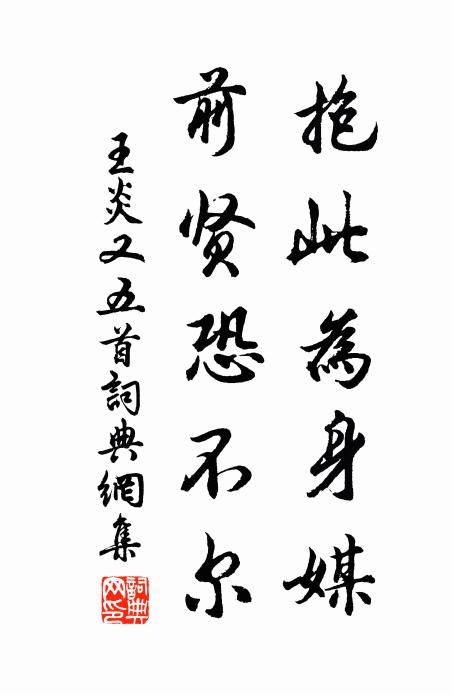 抱此為身媒
前贤恐不尔
王炎又五首詞典網集